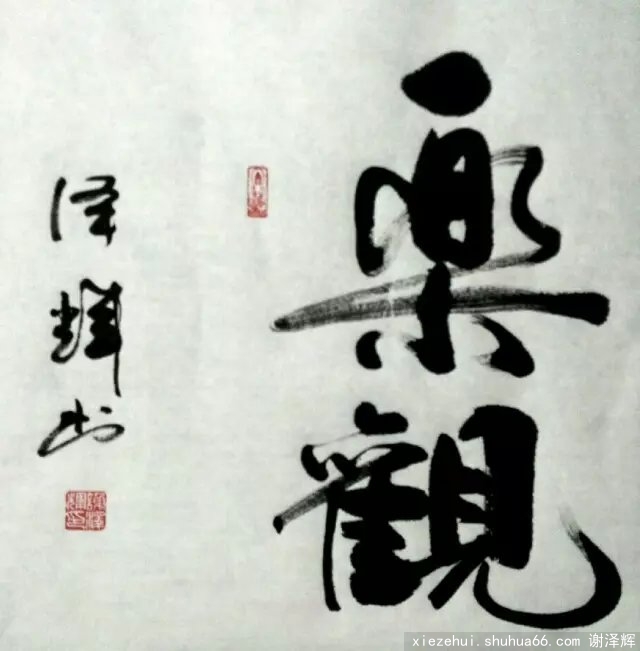 樂觀
泽辉书
xiezehui.shuhua66.com 谢泽辉